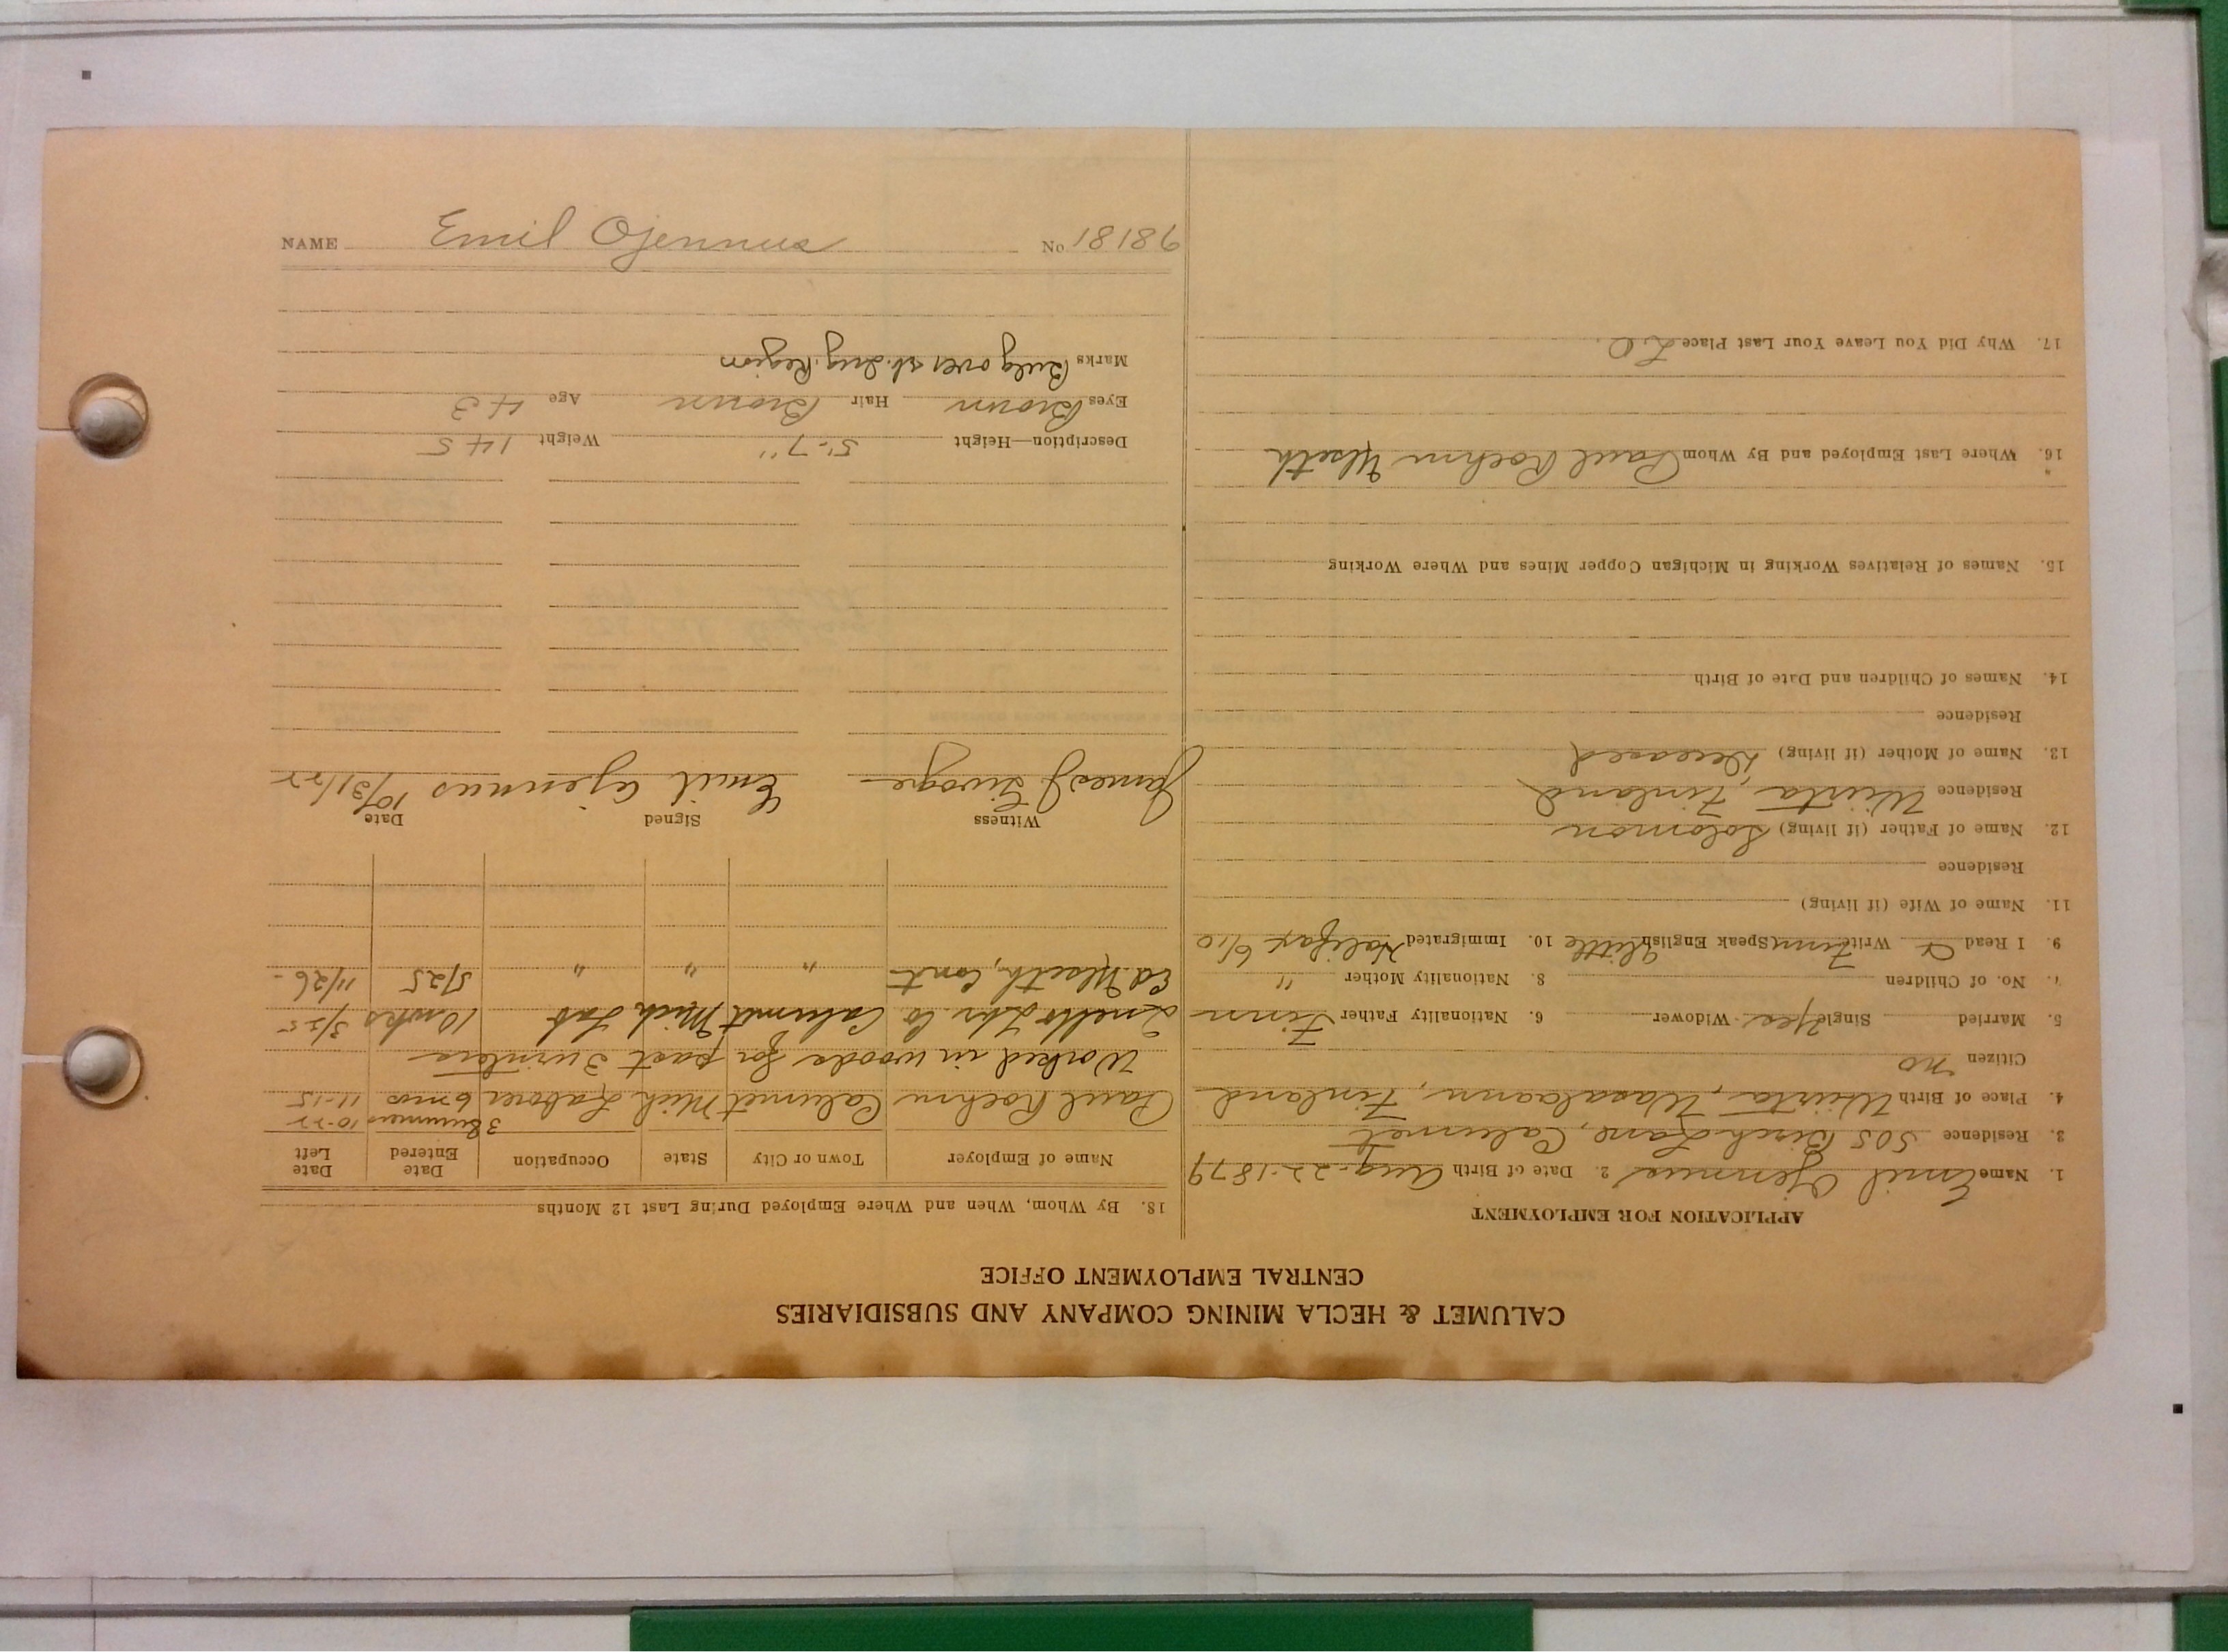 CALUMET & HECLA MINING COMPANY AND SUBSIDIARIES
CENTRAL EMPLOYMENT OFFICE
APPLICATION FOR EMPLOYMENT
1. Name Emil Ojennus 2. Date of Birth Aug-22-1879
3. Residence 505 Birch Lane, Calumet
4. Place of Birth Wiirta, Wasalaann, Finland
Citizen no
5. Married Single Yes Widower 6. Nationality Father Finn
7. No. of Children 8. Nationality Mother "
9. I Read & Write Finn Speak English little 10. Immigrated Halifax 6/10
11. Name of Wife (if living)
Residence
12. Name of Father (if living) Solomon
Residence Wiirta, Finland
13. Name of Mother (if living) Deceased
Residence
14. Names of Children and Date of Birth
15. Names of Relatives Working in Michigan Copper Mines and Where Working
16. Where Last Employed and By Whom Paul Roehm Ulseth
17. Why Did You Leave Your Last Place L.O.
18. By Whom, When and Where Employed During Last 12 Months
Name of Employer Town or City State Occupation Date Entered Date Left
Paul Roehm Calumet Mich Laborer 3 Summers 6 mos 10-22 11-15
Worked in woods for past 3 winters
Lbr Co Calumet Mich Lab 10 wks 3/25
Ed Ulseth, Cont " " " 5/25 11/26-
Witness Signed Date
James J Emil Ojennus 10/31/22
Description—Height 5'-7" Weight 145
Eyes Brown Hair Brown Age 43
Marks Bulg over rt. Ing. Region
NAME Emil Ojennus No 18189